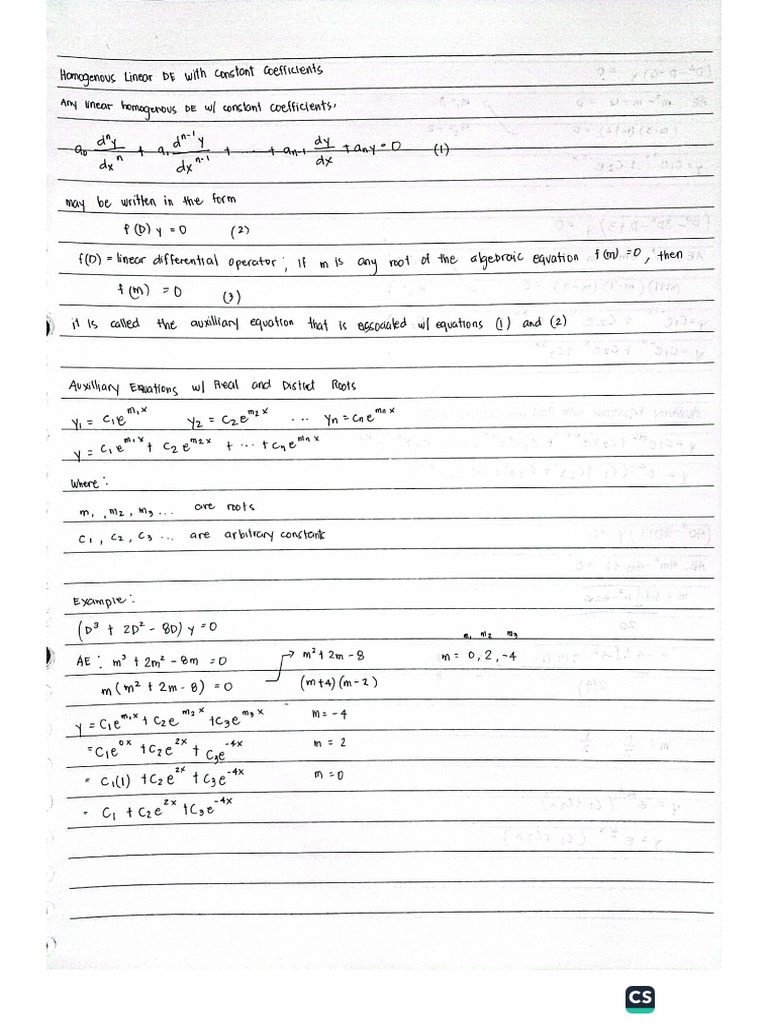 Homogenous Linear DE with Constant Coefficients
Any linear homogenous DE w/ constant coefficients,
a₀ dⁿy/dxⁿ + a₁ dⁿ⁻¹y/dxⁿ⁻¹ + ... + aₙ₋₁ dy/dx + aₙy = 0 (1)
may be written in the form
f(D) y = 0 (2)
f(D) = linear differential operator; if m is any root of the algebraic equation f(m) = 0, then
f(m) = 0 (3)
it is called the auxilliary equation that is associated w/ equations (1) and (2)
Auxilliary Equations w/ Real and Distict Roots
y₁ = c₁e^(m₁x) y₂ = c₂e^(m₂x) ... yₙ = cₙe^(mₙx)
y = c₁e^(m₁x) + c₂e^(m₂x) + ... + cₙe^(mₙx)
Where:
m₁, m₂, m₃ ... are roots
c₁, c₂, c₃ ... are arbitrary constants
Example:
(D³ + 2D² - 8D) y = 0
m₂ m₃
AE: m³ + 2m² - 8m = 0 m² + 2m - 8 m = 0, 2, -4
m(m² + 2m - 8) = 0 (m+4)(m-2)
y = c₁e^(m₁x) + c₂e^(m₂x) + c₃e^(m₃x) m = -4
= c₁e^(0x) + c₂e^(2x) + c₃e^(-4x) m = 2
= c₁(1) + c₂e^(2x) + c₃e^(-4x) m = 0
= c₁ + c₂e^(2x) + c₃e^(-4x)
CS